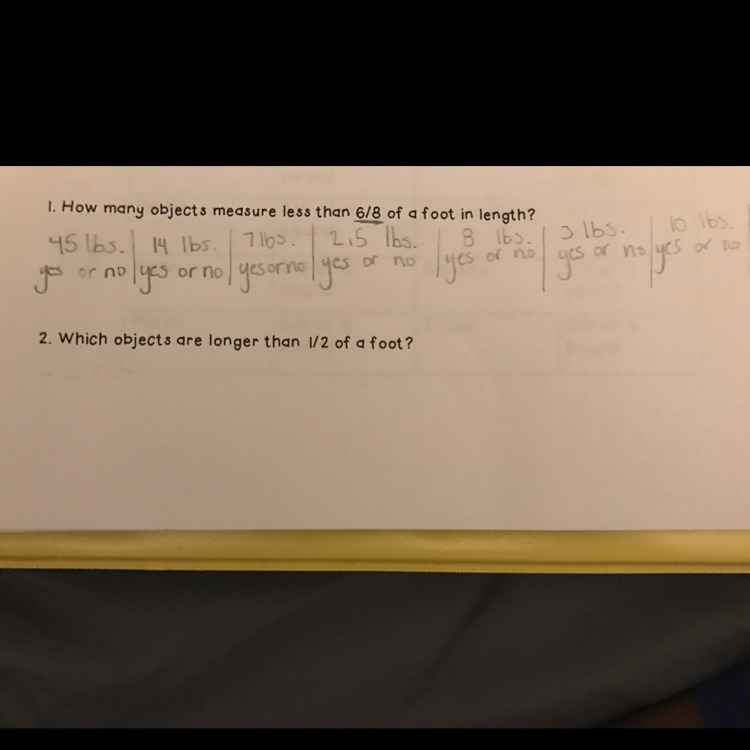 1. How many objects measure less than 6/8 of a foot in length?
45 lbs. 14 lbs. 7 lbs. 2.5 lbs. 8 lbs. 3 lbs. 10 lbs.
yes or no yes or no yes or no yes or no yes or no yes or no yes or no
2. Which objects are longer than 1/2 of a foot?